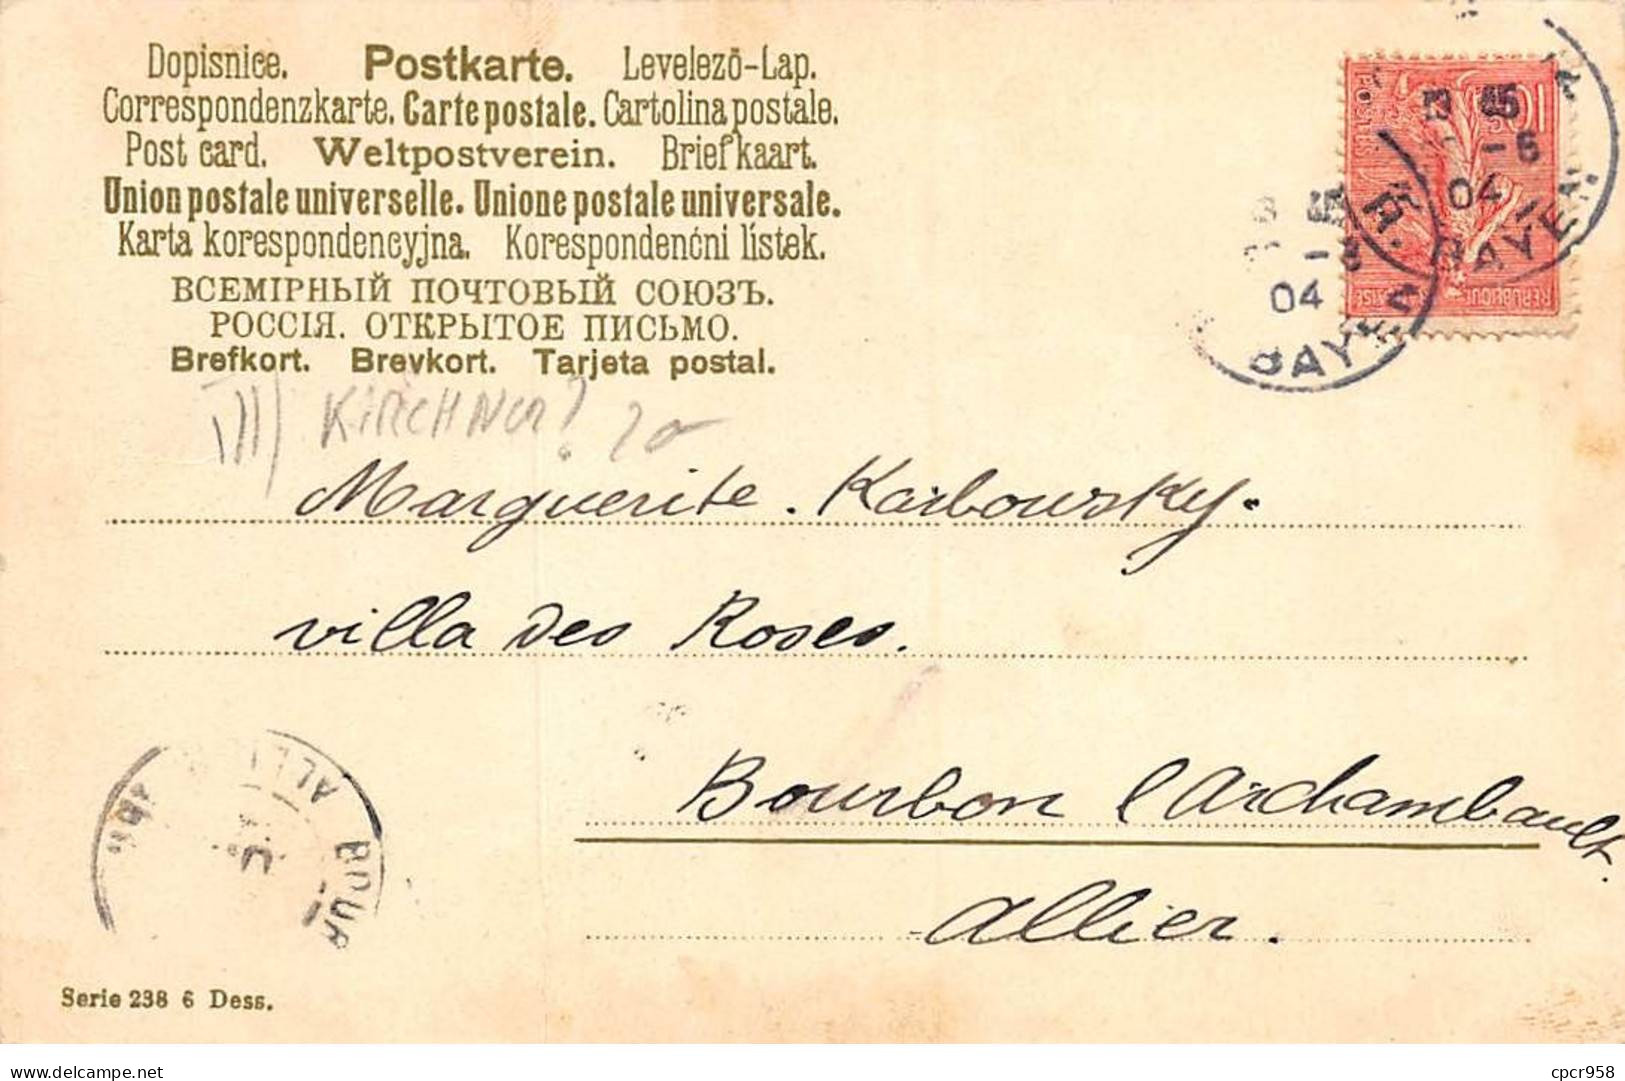 Dopisnice. Postkarte. Levelező-Lap.
Correspondenzkarte. Carte postale. Cartolina postale.
Post card. Weltpostverein. Briefkaart.
Union postale universelle. Unione postale universale.
Karta korespondencyjna. Korespondenčni lístek.
ВСЕМІРНЫЙ ПОЧТОВЫЙ СОЮЗЪ.
РОССІЯ. ОТКРЫТОЕ ПИСЬМО.
Brefkort. Brevkort. Tarjeta postal.
KIRCHNER? 20
10
POSTES
04
BAYEU
04
BAYEU
Marguerite. Karbowsky.
villa des Roses.
Bourbon l'Archambault.
Allier.
BOUR
ALLI
Serie 238 6 Dess.
cpcr958